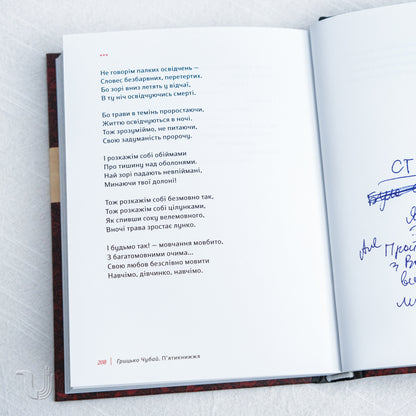 ***
Не говорім палких освідчень —
Словес безбарвних, перетертих,
Бо зорі вниз летять у відчаї,
В ту ніч освідчуючись смерті.
Бо трави в темінь проростаючи,
Життю освідчуються в ночі.
Тож зрозуміймо, не питаючи,
Свою задуманість пророчу.
І розкажім собі обіймами
Про тишину над оболонями.
Най зорі падають невпіймані,
Минаючи твої долоні!
Тож розкажім собі безмовно так,
Тож розкажім собі цілунками,
Як спивши соку велемовного,
Вночі трава зростає лунко.
І будьмо так! — мовчання мовбито,
З багатомовними очима...
Свою любов безслівно мовити
Навчімо, дівчинко, навчімо.
208 | Грицько Чубай. П'ятикнижжя
СТ
Але
з